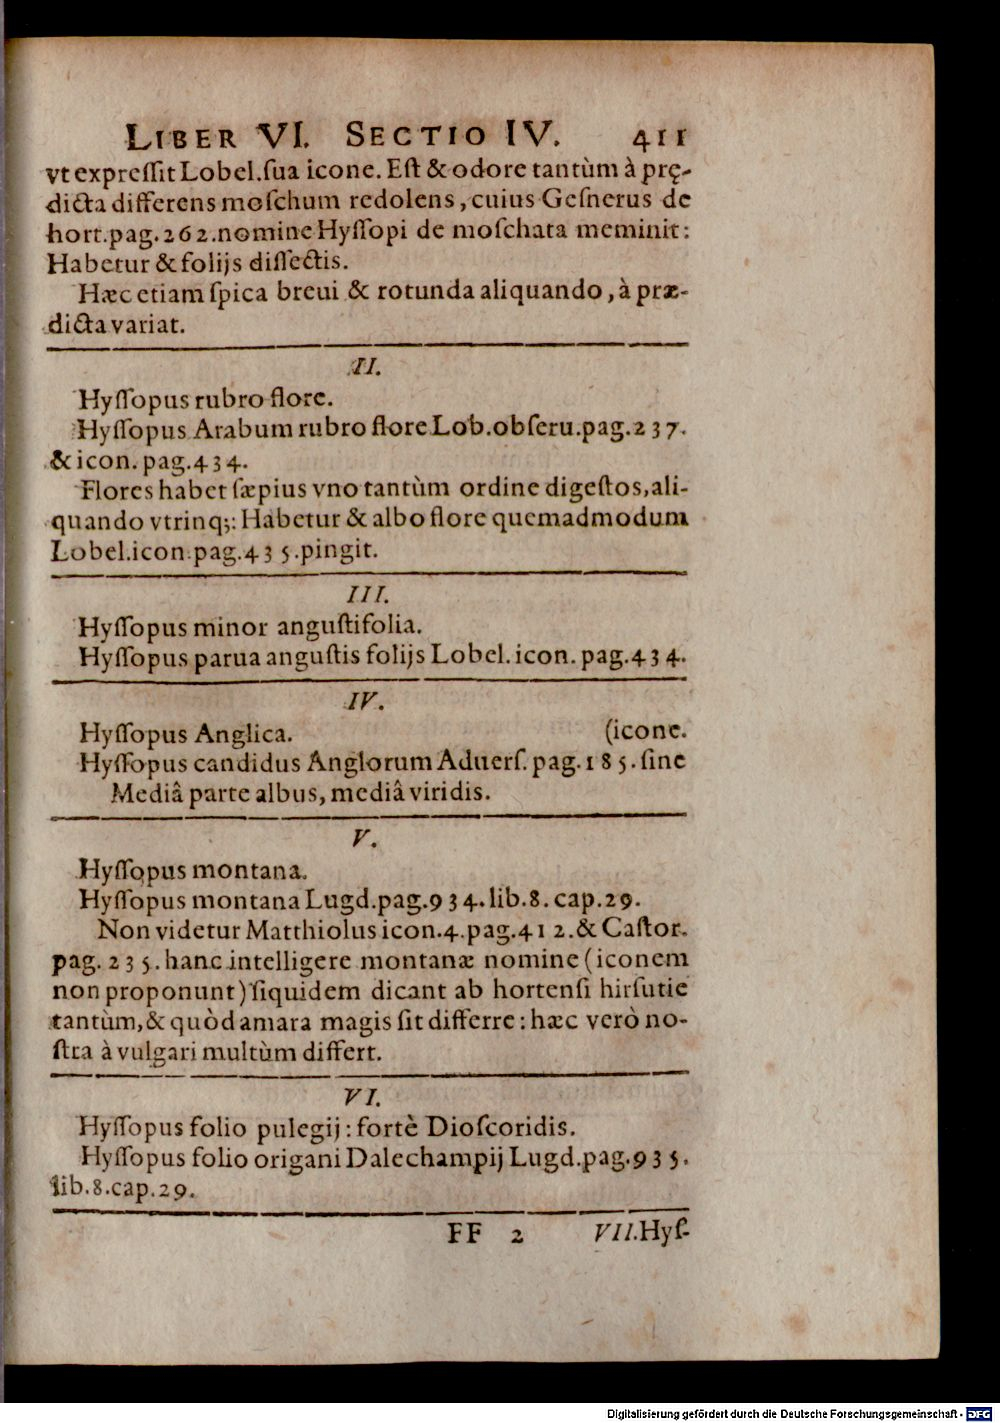 LIBER VI. SECTIO IV. 411
vt expreſſit Lobel.ſua icone. Eſt & odore tantùm à prę-
dicta differens moſchum redolens, cuius Geſnerus de
hort.pag.262.nomine Hyſſopi de moſchata meminit:
Habetur & folijs diſſectis.
Hæc etiam ſpica breui & rotunda aliquando, à præ-
dicta variat.
II.
Hyſſopus rubro flore.
Hyſſopus Arabum rubro flore Lob.obſeru.pag.237.
& icon.pag.434.
Flores habet ſæpius vno tantùm ordine digeſtos, ali-
quando vtrinq;: Habetur & albo flore quemadmodum
Lobel.icon.pag.435.pingit.
III.
Hyſſopus minor anguſtifolia.
Hyſſopus parua anguſtis folijs Lobel.icon.pag.434.
IV.
Hyſſopus Anglica. (icone.
Hyſſopus candidus Anglorum Aduerſ.pag.185.ſine
Mediâ parte albus, mediâ viridis.
V.
Hyſſopus montana.
Hyſſopus montana Lugd.pag.934.lib.8.cap.29.
Non videtur Matthiolus icon.4.pag.412.& Caſtor.
pag.235.hanc intelligere montanæ nomine (iconem
non proponunt) ſiquidem dicant ab hortenſi hirſutie
tantùm, & quòd amara magis ſit differre: hæc verò no-
ſtra à vulgari multùm differt.
VI.
Hyſſopus folio pulegij: fortè Dioſcoridis.
Hyſſopus folio origani Dalechampij Lugd.pag.935.
lib.8.cap.29.
FF 2 VII.Hyſ-
Digitalisierung gefördert durch die Deutsche Forschungsgemeinschaft - DFG